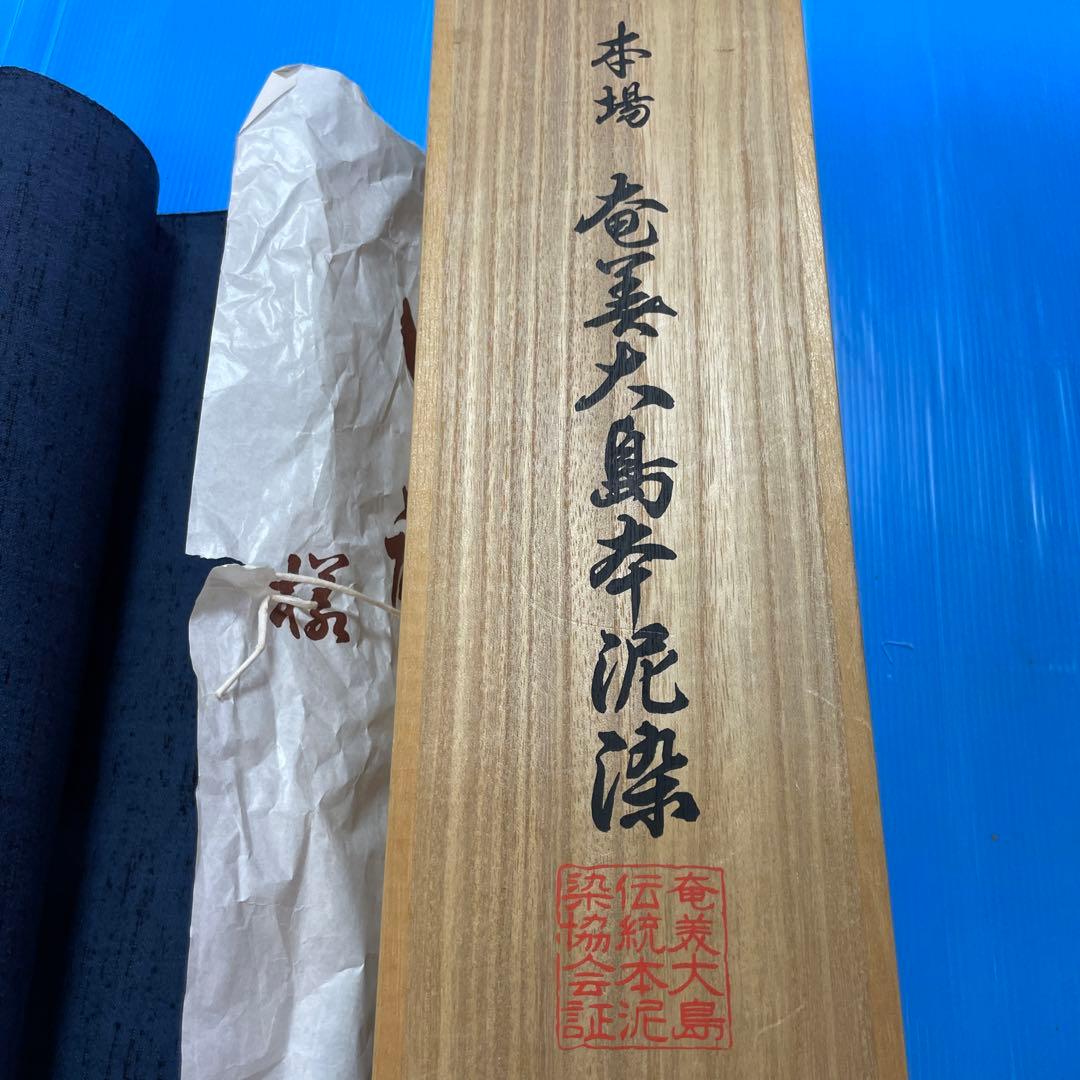 本場 奄美大島本泥染
奄美大島
伝統本泥
染協会証
様